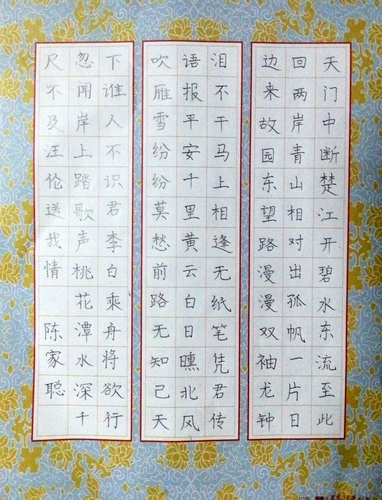 天门中断楚江开碧水东流至此
回两岸青山相对出孤帆一片日
边来故园东望路漫漫双袖龙钟
泪不干马上相逢无纸笔凭君传
语报平安十里黄云白日曛北风
吹雁雪纷纷莫愁前路无知己天
下谁人不识君李白乘舟将欲行
忽闻岸上踏歌声桃花潭水深千
尺不及汪伦送我情 陈家聪